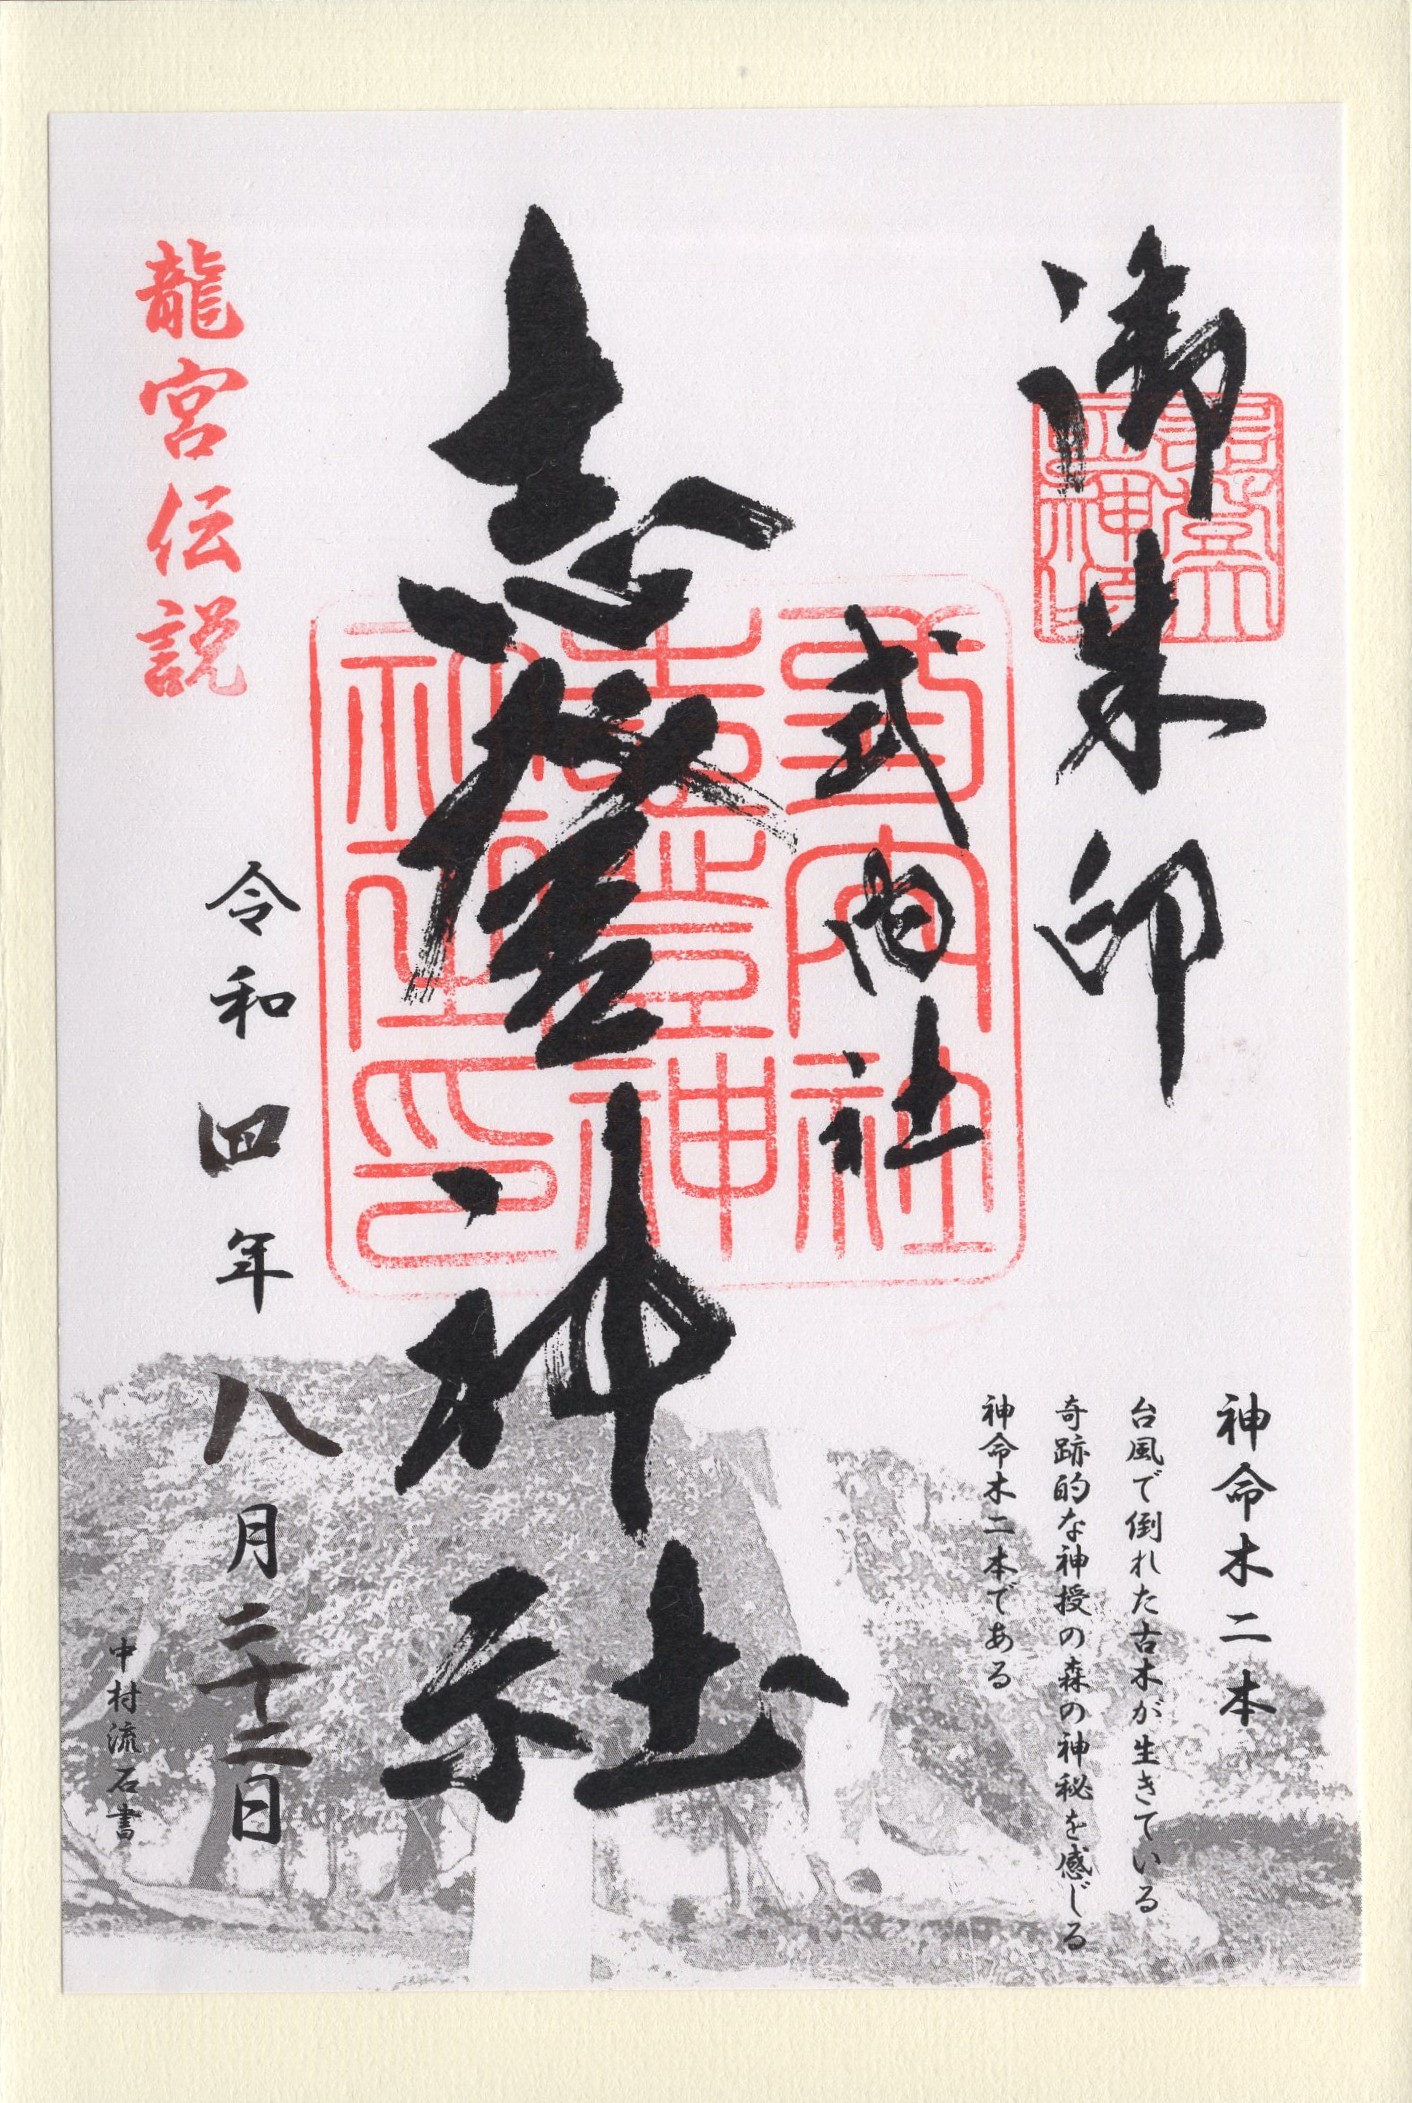 御朱印
式内社
志登神社
龍宮伝説
令和四年八月二十二日
中村流石書
神命木二本
台風で倒れた古木が生きている
奇跡的な神授の森の神秘を感じる
神命木二本である
式内社
志登神
社之印